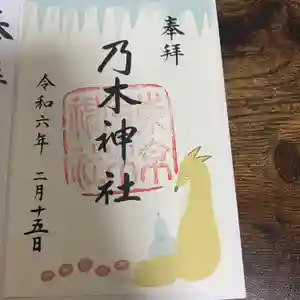 奉拝
乃木神社
令和六年 二月十五日